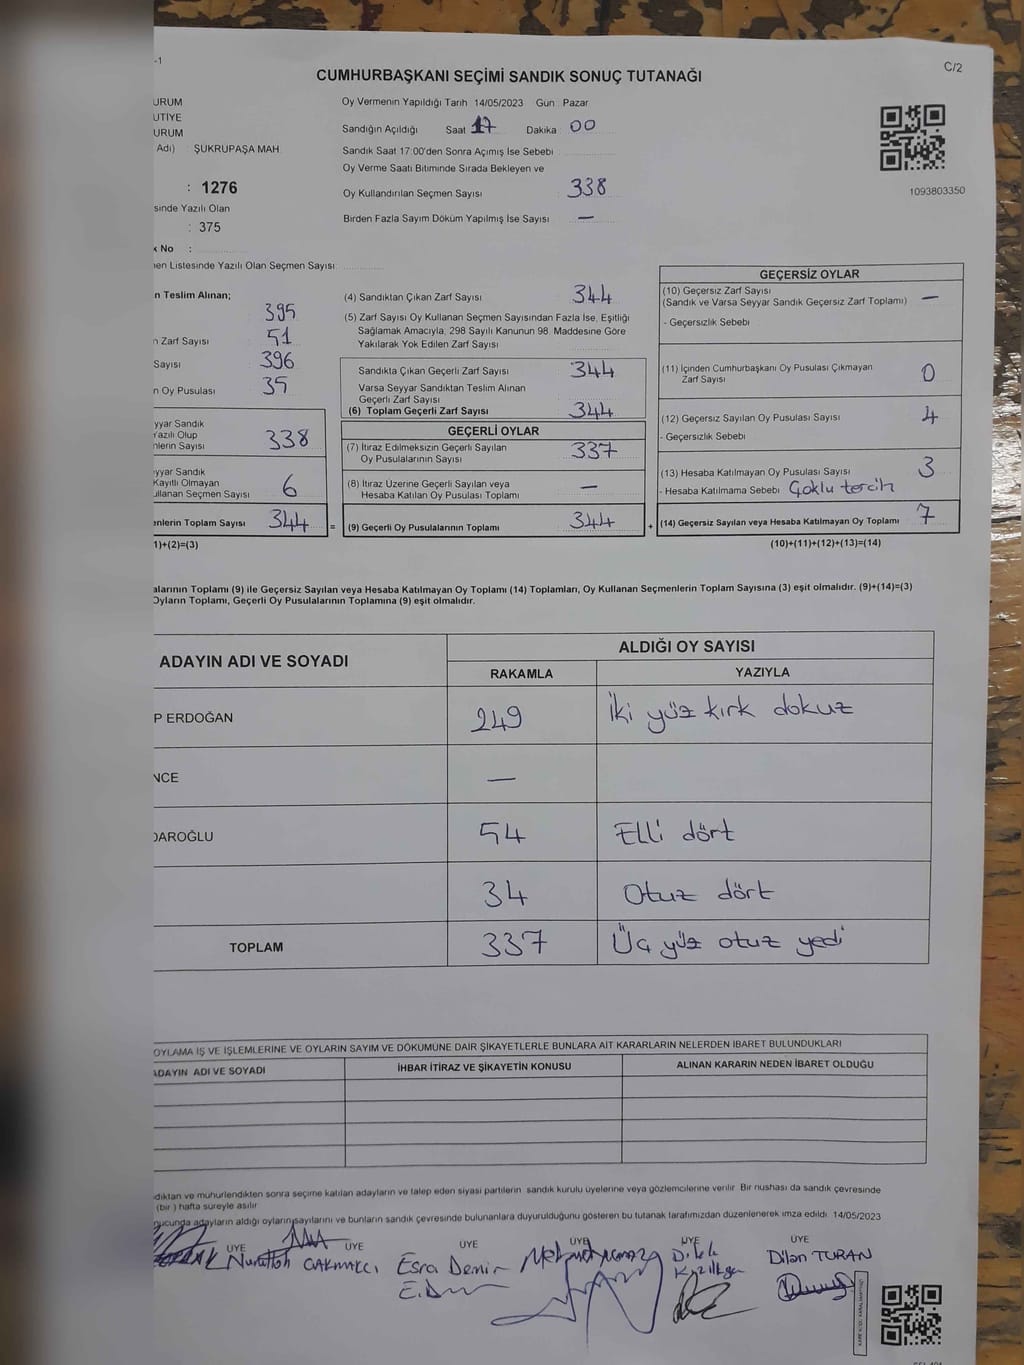 -1
C/2
CUMHURBAŞKANI SEÇİMİ SANDIK SONUÇ TUTANAĞI
URUM
UTİYE
URUM
Adı) : ŞUKRUPAŞA MAH
: 1276
sinde Yazılı Olan
: 375
k No :
en Listesinde Yazılı Olan Seçmen Sayısı
Oy Vermenin Yapıldığı Tarih 14/05/2023 Gün Pazar
Sandığın Açıldığı Saat 17 Dakika 00
Sandık Saat 17:00'den Sonra Açımış İse Sebebi
Oy Verme Saati Bitiminde Sırada Bekleyen ve
Oy Kullandırılan Seçmen Sayısı 338
Birden Fazla Sayım Döküm Yapılmış İse Sayısı —
1093803350
n Teslim Alınan;
395
n Zarf Sayısı 51
Sayısı 396
n Oy Pusulası 35
yyar Sandık
Yazılı Olup
nlerin Sayısı 338
eyyar Sandık
Kayıtlı Olmayan
ullanan Seçmen Sayısı 6
enlerin Toplam Sayısı 344 =
1)+(2)=(3)
(4) Sandıktan Çıkan Zarf Sayısı 344
(5) Zarf Sayısı Oy Kullanan Seçmen Sayısından Fazla İse, Eşitliği
Sağlamak Amacıyla, 298 Sayılı Kanunun 98. Maddesine Göre
Yakılarak Yok Edilen Zarf Sayısı
Sandıkta Çıkan Geçerli Zarf Sayısı 344
Varsa Seyyar Sandıktan Teslim Alınan
Geçerli Zarf Sayısı
(6) Toplam Geçerli Zarf Sayısı 344
GEÇERLİ OYLAR
(7) İtiraz Edilmeksizin Geçerli Sayılan
Oy Pusulalarının Sayısı 337
(8) İtiraz Üzerine Geçerli Sayılan veya
Hesaba Katılan Oy Pusulası Toplamı —
(9) Geçerli Oy Pusulalarının Toplamı 344 +
GEÇERSİZ OYLAR
(10) Geçersiz Zarf Sayısı
(Sandık ve Varsa Seyyar Sandık Geçersiz Zarf Toplamı) —
- Geçersizlik Sebebi
(11) İçinden Cumhurbaşkanı Oy Pusulası Çıkmayan
Zarf Sayısı 0
(12) Geçersiz Sayılan Oy Pusulası Sayısı 4
- Geçersizlik Sebebi
(13) Hesaba Katılmayan Oy Pusulası Sayısı 3
- Hesaba Katılmama Sebebi Çoklu tercih
(14) Geçersiz Sayılan veya Hesaba Katılmayan Oy Toplamı 7
(10)+(11)+(12)+(13)=(14)
alarının Toplamı (9) ile Geçersiz Sayılan veya Hesaba Katılmayan Oy Toplamı (14) Toplamları, Oy Kullanan Seçmenlerin Toplam Sayısına (3) eşit olmalıdır. (9)+(14)=(3)
Oyların Toplamı, Geçerli Oy Pusulalarının Toplamına (9) eşit olmalıdır.
ADAYIN ADI VE SOYADI
ALDIĞI OY SAYISI
RAKAMLA YAZIYLA
P ERDOĞAN 249 İki yüz kırk dokuz
NCE —
DAROĞLU 54 Elli dört
34 Otuz dört
TOPLAM 337 Üç yüz otuz yedi
OYLAMA İŞ VE İŞLEMLERİNE VE OYLARIN SAYIM VE DÖKÜMÜNE DAİR ŞİKAYETLERLE BUNLARA AİT KARARLARIN NELERDEN İBARET BULUNDUKLARI
ADAYIN ADI VE SOYADI İHBAR İTİRAZ VE ŞİKAYETİN KONUSU ALINAN KARARIN NEDEN İBARET OLDUĞU
dıktan ve mühürlendikten sonra seçime katılan adayların ve talep eden siyasi partilerin sandık kurulu üyelerine veya gözlemcilerine verilir. Bir nüshası da sandık çevresinde
(bir) hafta süreyle asılır
nucunda adayların aldığı oyların sayılarını ve bunların sandık çevresinde bulunanlara duyurulduğunu gösteren bu tutanak tarafımızdan düzenlenerek imza edildi. 14/05/2023
ÜYE ÜYE ÜYE ÜYE ÜYE ÜYE
Nurullah CAKMAKCI Esra Demir Dilan TURAN
E.D